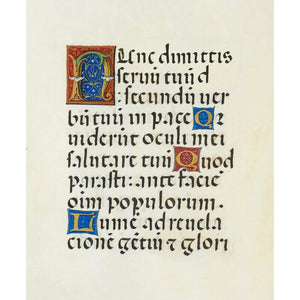 Nunc dimittis
servū tuū d
: secundū ver
bū tuū in pace Q
niderūt oculi mei
salutare tuū Quod
parasti: ante facie
oīm populorum.
Lumē ad revela
cionē gētiū ⁊ glori